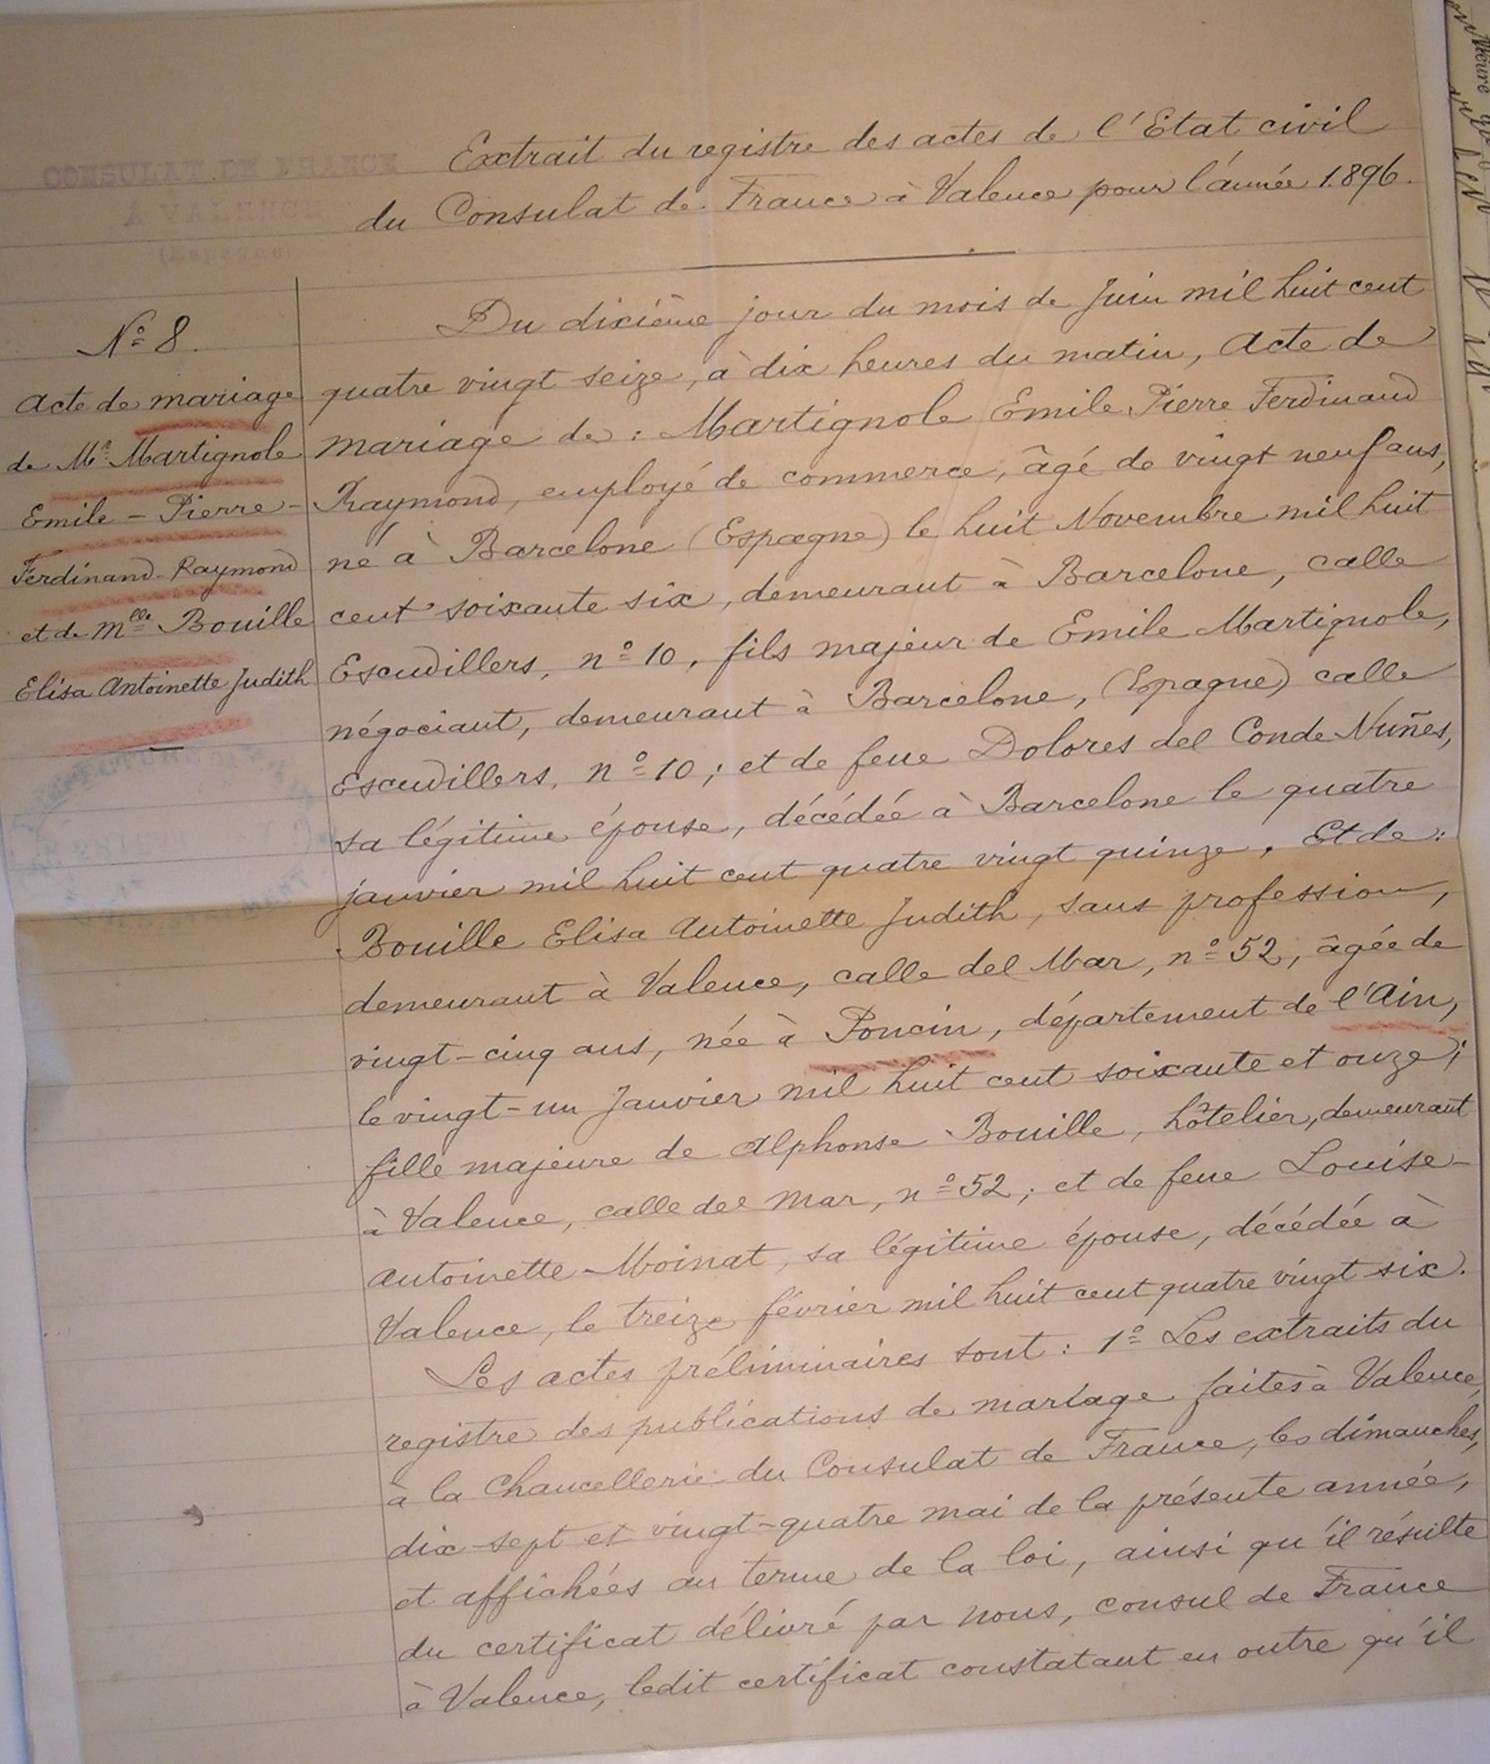 Extrait du registre des actes de l'Etat civil
du Consulat de France à Valence pour l'année 1.896.
CONSULAT DE FRANCE
A VALENCE
(Espagne)
N° 8.
Acte de mariage
de Mr Martignole
Emile - Pierre -
Ferdinand - Raymond
et de Mlle Bouille
Elisa Antoinette Judith
Du dixième jour du mois de Juin mil huit cent
quatre vingt seize, à dix heures du matin, Acte de
mariage de : Martignole Emile Pierre Ferdinand
Raymond, employé de commerce, âgé de vingt neuf ans,
né à Barcelone (Espagne) le huit Novembre mil huit
cent soixante six, demeurant à Barcelone, calle
Escudillers, n° 10, fils majeur de Emile Martignole,
négociant, demeurant à Barcelone, (Espagne) calle
Escudillers, n° 10 ; et de feue Dolores del Conde Nuñes,
sa légitime épouse, décédée à Barcelone le quatre
janvier mil huit cent quatre vingt quinze. Et de :
Bouille Elisa Antoinette Judith, sans profession,
demeurant à Valence, calle del Mar, n° 52, âgée de
vingt-cinq ans, née à Poncin, département de l'Ain,
le vingt-un Janvier mil huit cent soixante et onze ;
fille majeure de Alphonse Bouille, hôtelier, demeurant
à Valence, calle del Mar, n° 52 ; et de feue Louise-
Antoinette Moinat, sa légitime épouse, décédée à
Valence, le treize février mil huit cent quatre vingt six.
Les actes préliminaires sont : 1° Les extraits du
registre des publications de mariage faites à Valence,
à la Chancellerie du Consulat de France, les dimanches,
dix-sept et vingt-quatre mai de la présente année,
et affichées au terme de la loi, ainsi qu'il résulte
du certificat délivré par nous, consul de France
à Valence, ledit certificat constatant en outre qu'il